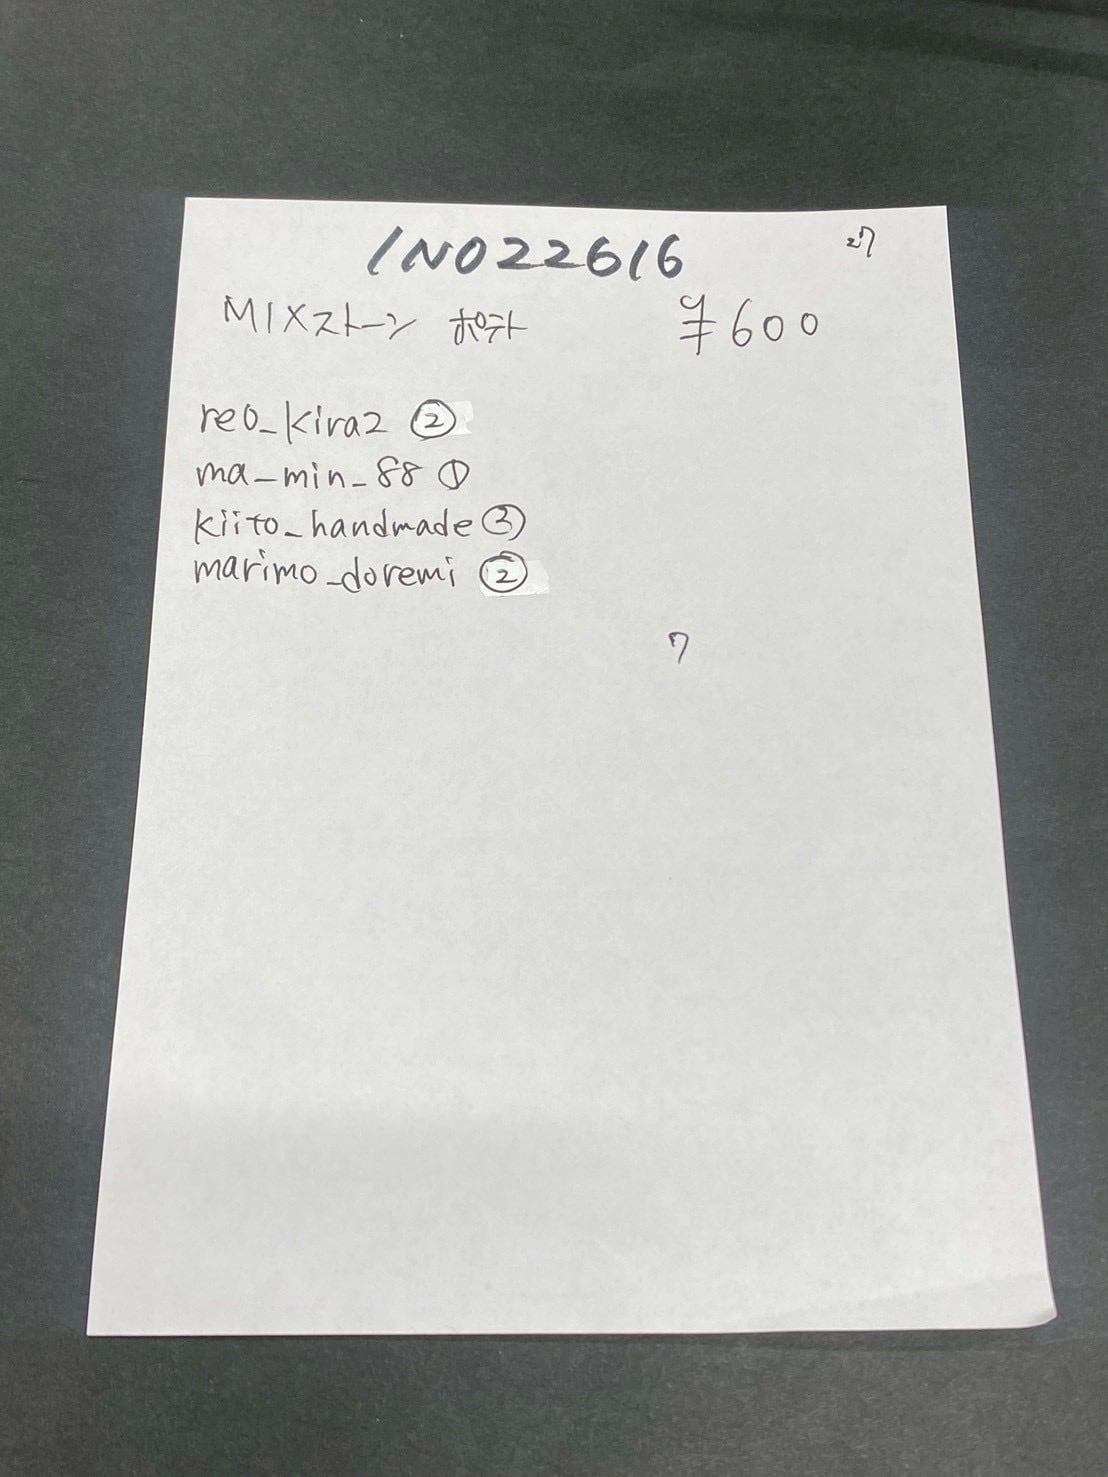 INO22616
27
MIXストーン ポテト ¥600
reo_kira2 ②
ma-min-88 ①
kiito_handmade ②
marimo_doremi ②
7